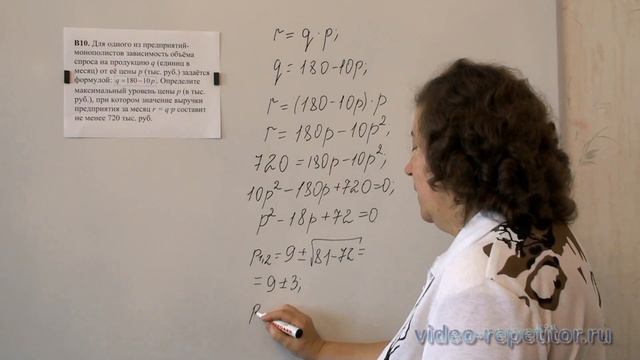 В10. Для одного из предприятий-
монополистов зависимость объёма
спроса на продукцию q (единиц в
месяц) от её цены p (тыс. руб.) задаётся
формулой: q = 180 – 10p. Определите
максимальный уровень цены p (в тыс.
руб.), при котором значение выручки
предприятия за месяц r = q p составит
не менее 720 тыс. руб.
r = q · p;
q = 180 – 10p;
r = (180 – 10p) · p
r = 180p – 10p²,
720 = 180p – 10p²,
10p² – 180p + 720 = 0;
p² – 18p + 72 = 0
p₁,₂ = 9 ± √81 – 72 =
= 9 ± 3;
p
video-repetitor.ru